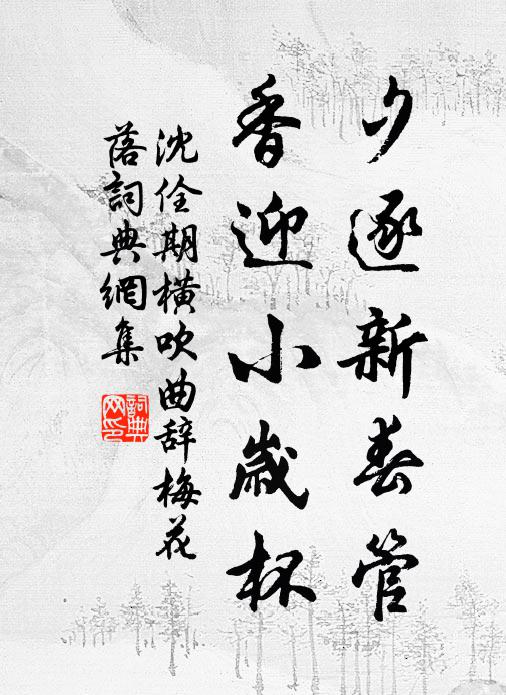 夕逐新春管
香迎小歲杯
沈佺期橫吹曲辞梅花
落詞典網集
詞典
网印